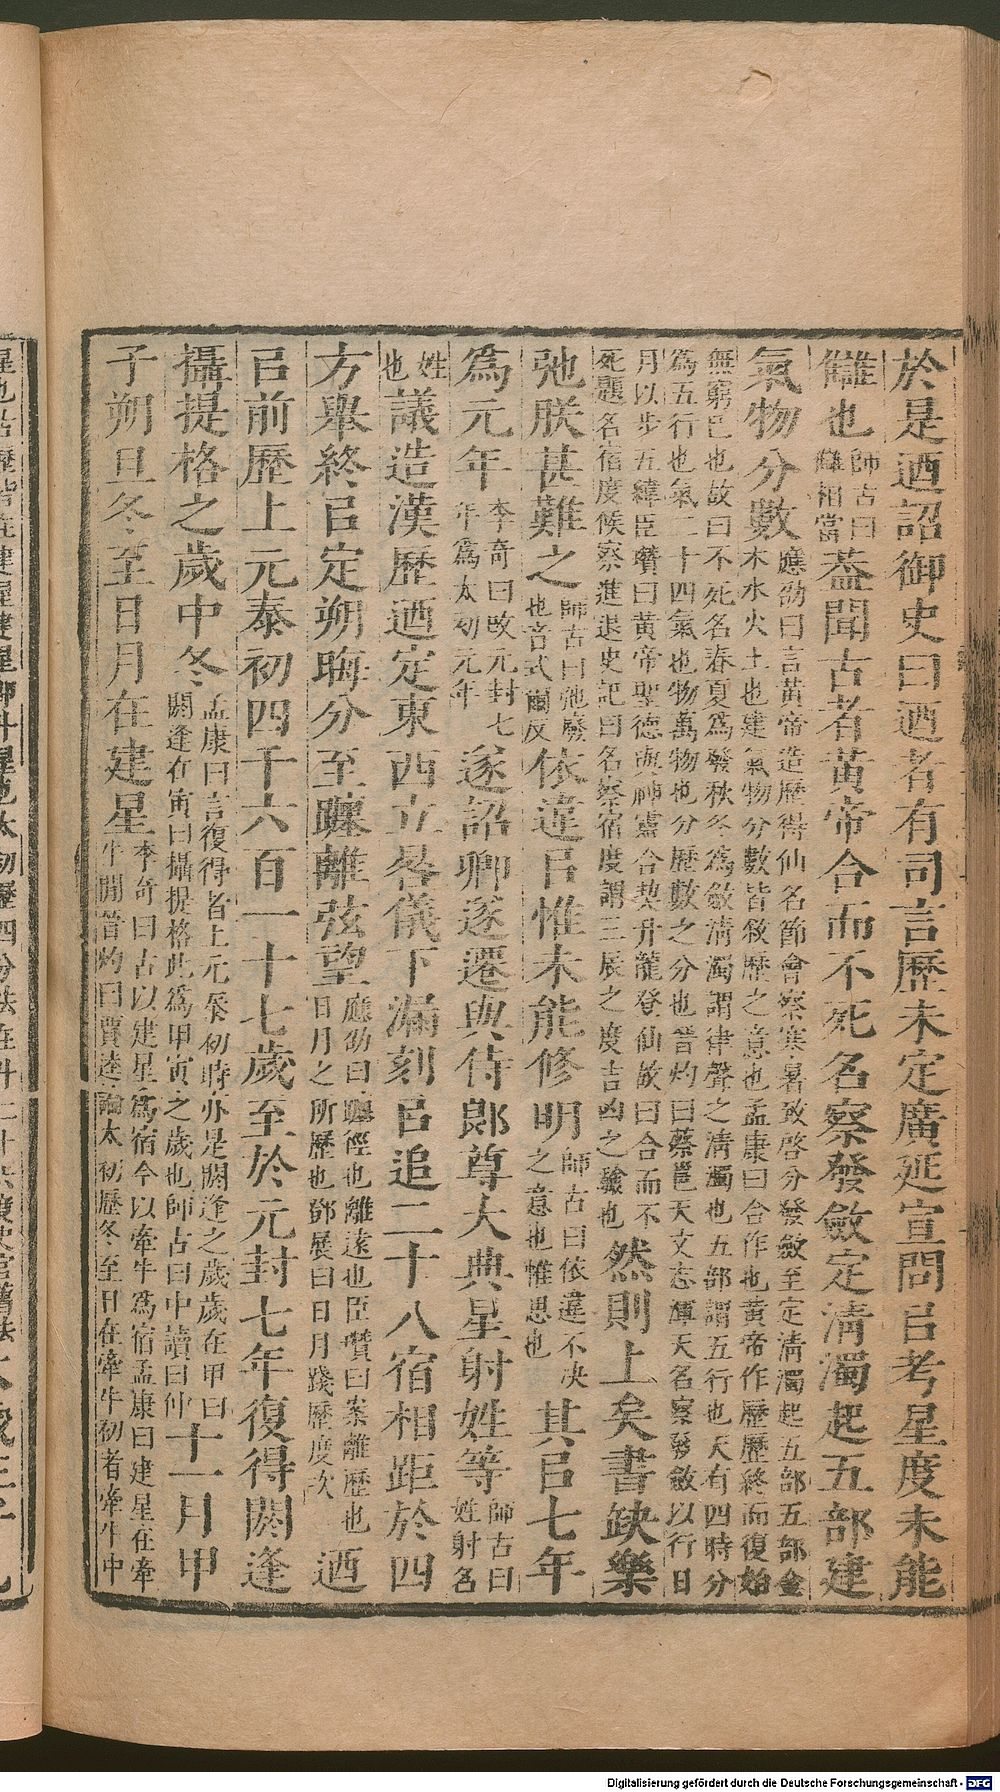 於是迺詔御史曰迺者有司言歷未定廣延宣問㠯考星度未能
讎也師古曰讎相當盖聞古者黃帝合而不死名察發斂定清濁起五部建
氣物分數應劭曰言黃帝造歷得仙名節會察寒暑致啓分發斂至定清濁起五部五部金
木水火土也建氣物分數皆敘歷之意也孟康曰合作也黃帝作歷歷終而復始
無窮已也故曰不死名春夏爲發秋冬爲斂清濁謂律聲之清濁也五部謂五行也天有四時分
爲五行也氣二十四氣也物萬物也分歷數之分也晉灼曰蔡邕天文志渾天名察發斂以行日
月以步五緯臣瓚曰黃帝聖德與神靈合契升龍登仙故曰合而不
死題名宿度候察進退史記曰名察宿度謂三辰之度吉凶之驗也然則上矣書缺樂
弛朕甚難之師古曰弛廢也音式爾反依違㠯惟未能修明師古曰依違不決之意也惟思也其㠯七年
爲元年李奇曰改元封七年爲太初元年遂詔卿遂遷與侍郞尊大典星射姓等師古曰姓射名
姓也議造漢歷迺定東西立晷儀下漏刻㠯追二十八宿相距於四
方舉終㠯定朔晦分至躔離弦望應劭曰躔徑也離遠也臣瓚曰案離歷也日月之所歷也鄧展曰日月踐歷度次迺
㠯前歷上元泰初四千六百一十七歲至於元封七年復得閼逢
攝提格之歲中冬孟康曰言復得者上元泰初時亦是閼逢之歲歲在甲曰閼逢在寅曰攝提格此爲甲寅之歲也師古曰中讀曰仲十一月甲
子朔旦冬至日月在建星李奇曰古以建星爲宿今以牽牛爲宿孟康曰建星在牽牛閒晉灼曰賈逵論太初歷冬至日在牽牛初者牽牛中
Digitalisierung gefördert durch die Deutsche Forschungsgemeinschaft - DFG